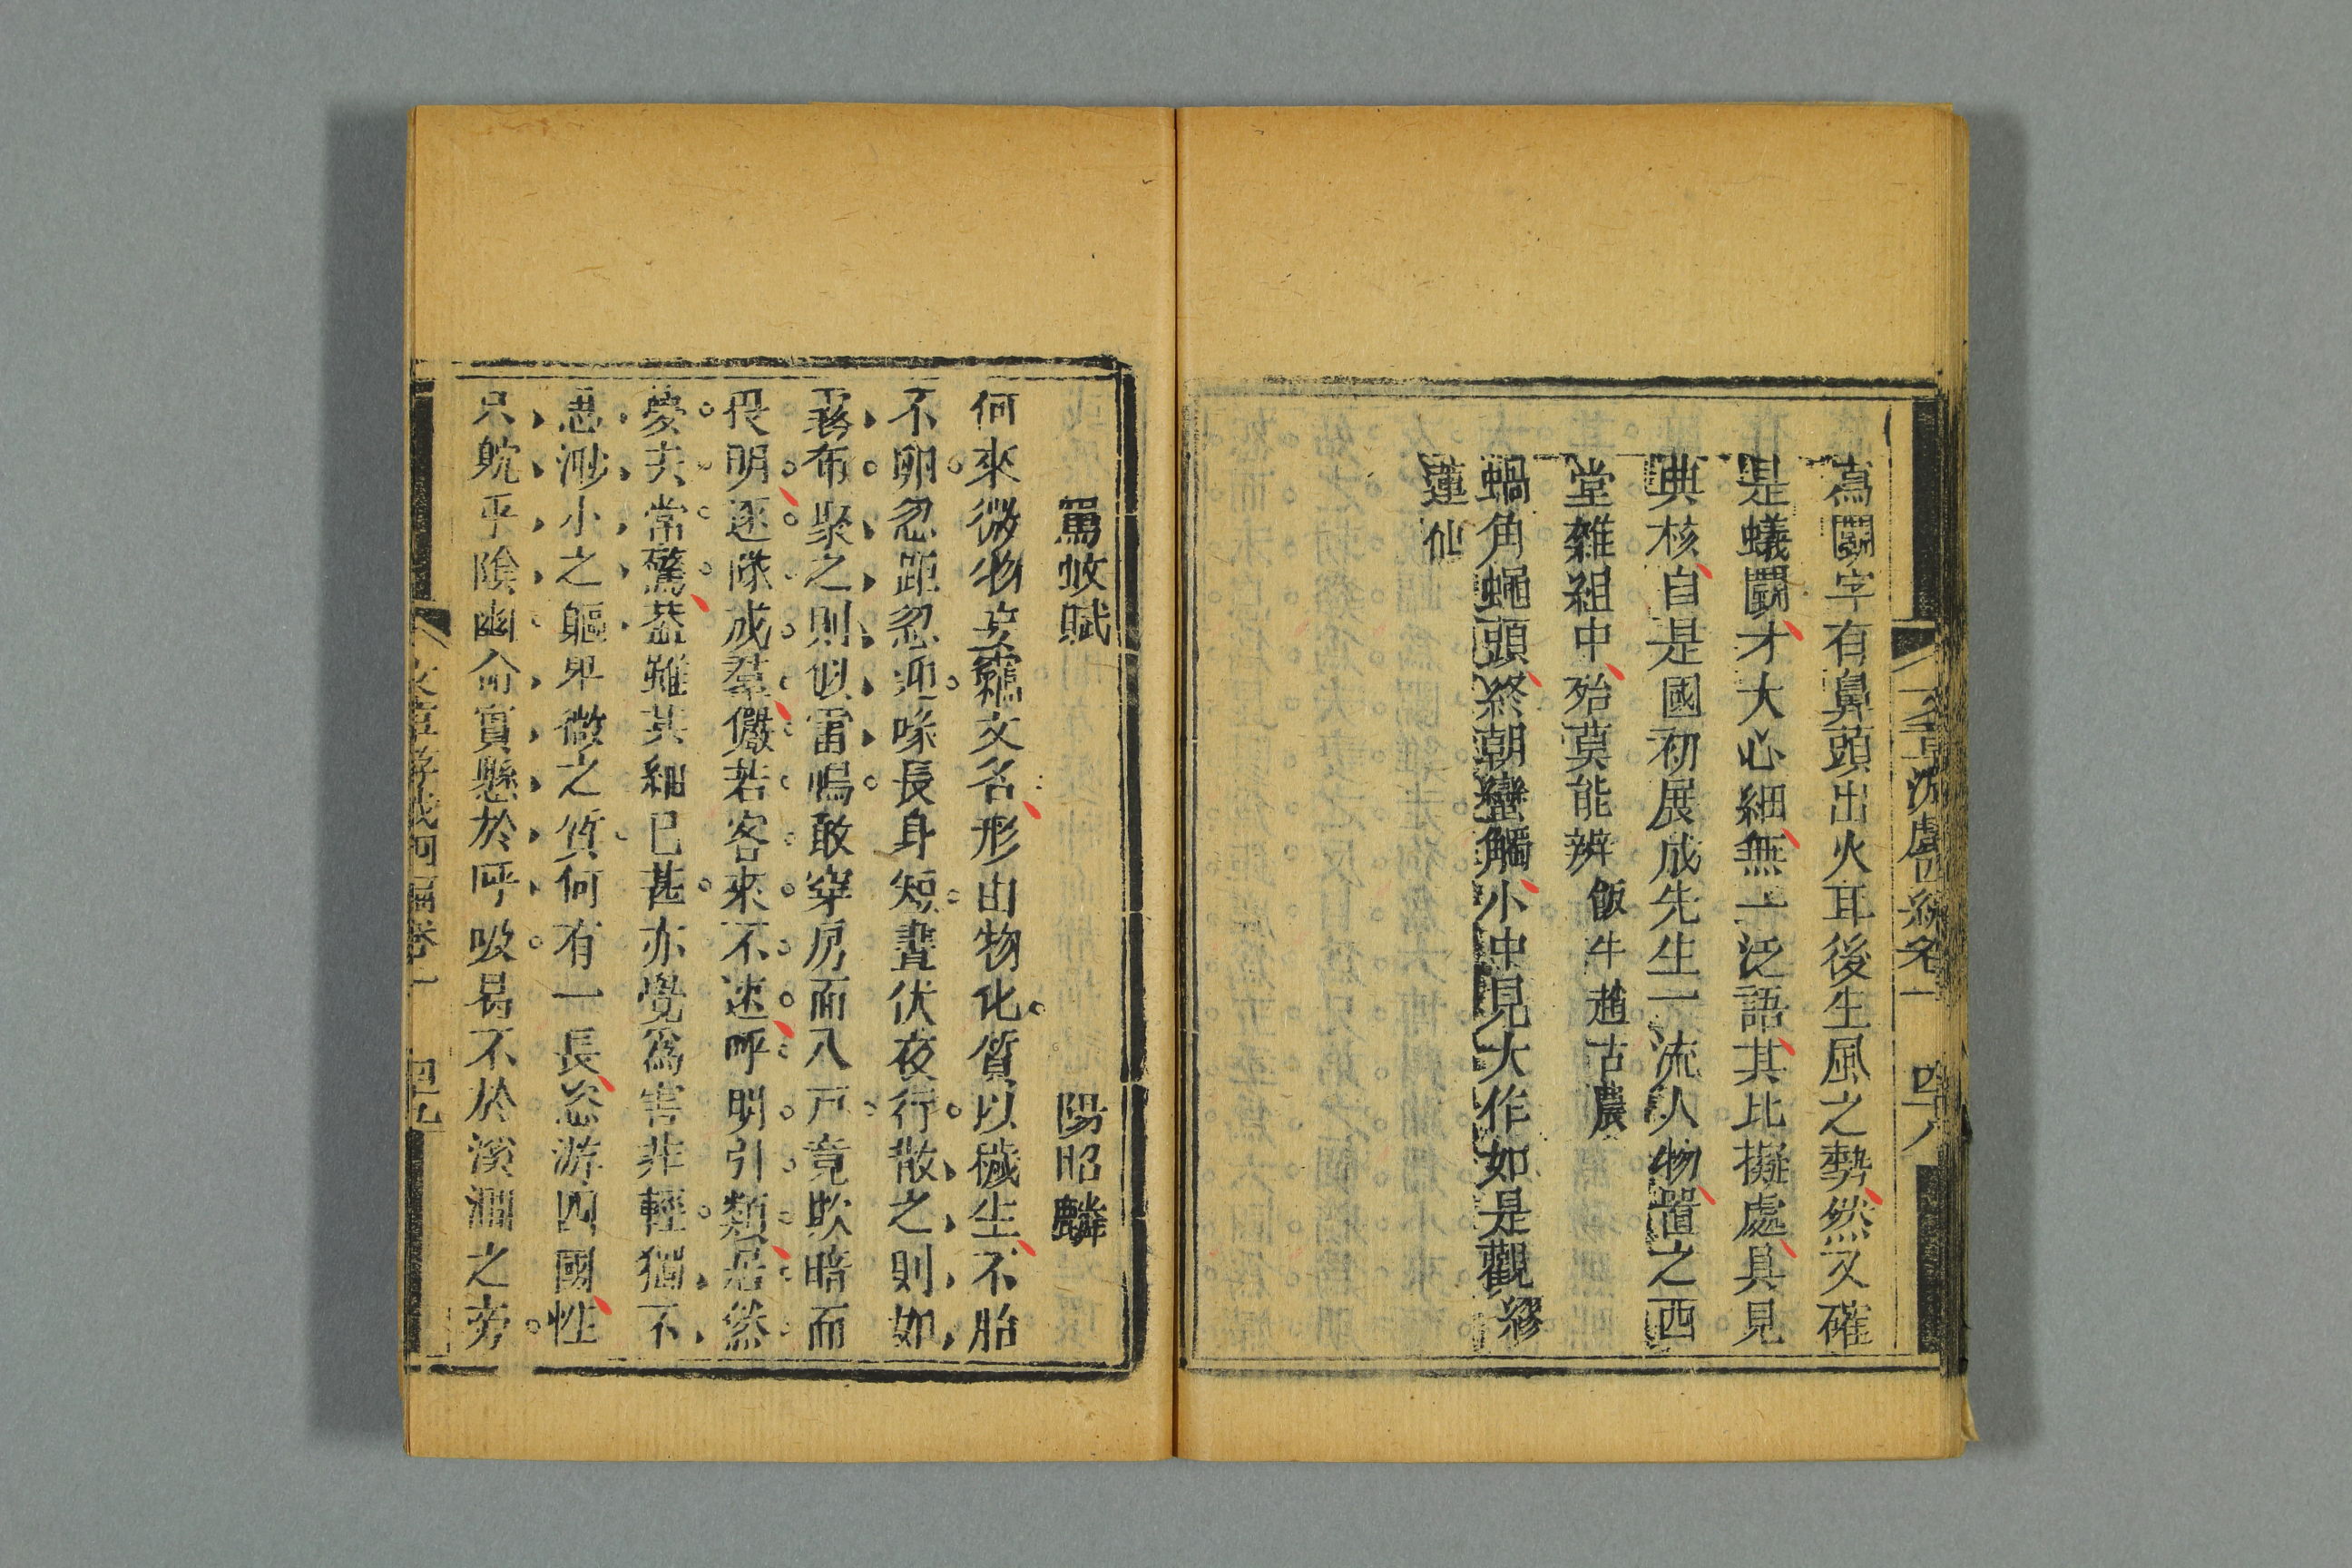 為鬭字有鼻頭出火耳後生風之勢然又確
是蟻鬭才大心細無一泛語其比擬處具見
典核自是國初展成先生一流人物置之西
堂雜組中殆莫能辨飯牛趙古農
蝸角蠅頭終朝蠻觸小中見大作如是觀繆
蓮仙
罵蚊賦 陽昭麟
何來微物妄竊文名形由物化質以穢生不胎
不卵忽距忽迎喙長身短晝伏夜行散之則如
霧布聚之則似雷鳴敢穿房而入戶竟欺暗而
畏明逐隊成羣儼若客來不速呼朋引類居然
夢夫常驚蓋雖其細已甚亦覺為害非輕獨不
思渺小之軀卑微之質何有一長恣游四國性
只躭乎陰幽命實懸於呼吸曷不於溪澗之旁